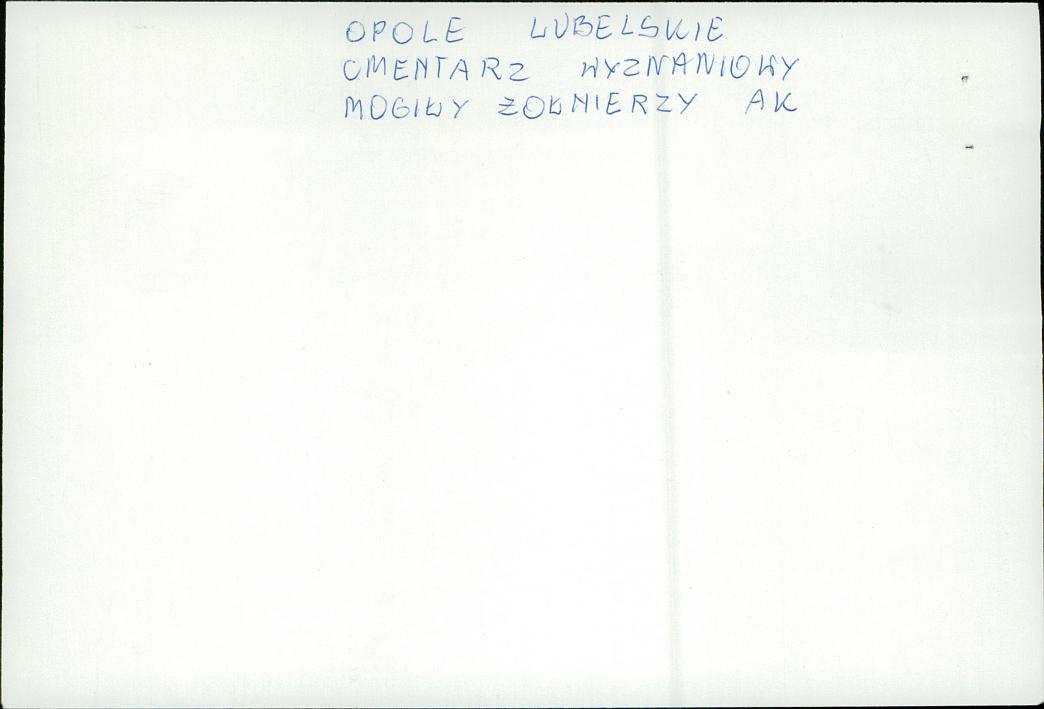 OPOLE LUBELSKIE
CMENTARZ WYZNANIOWY
MOGIŁY ŻOŁNIERZY AK